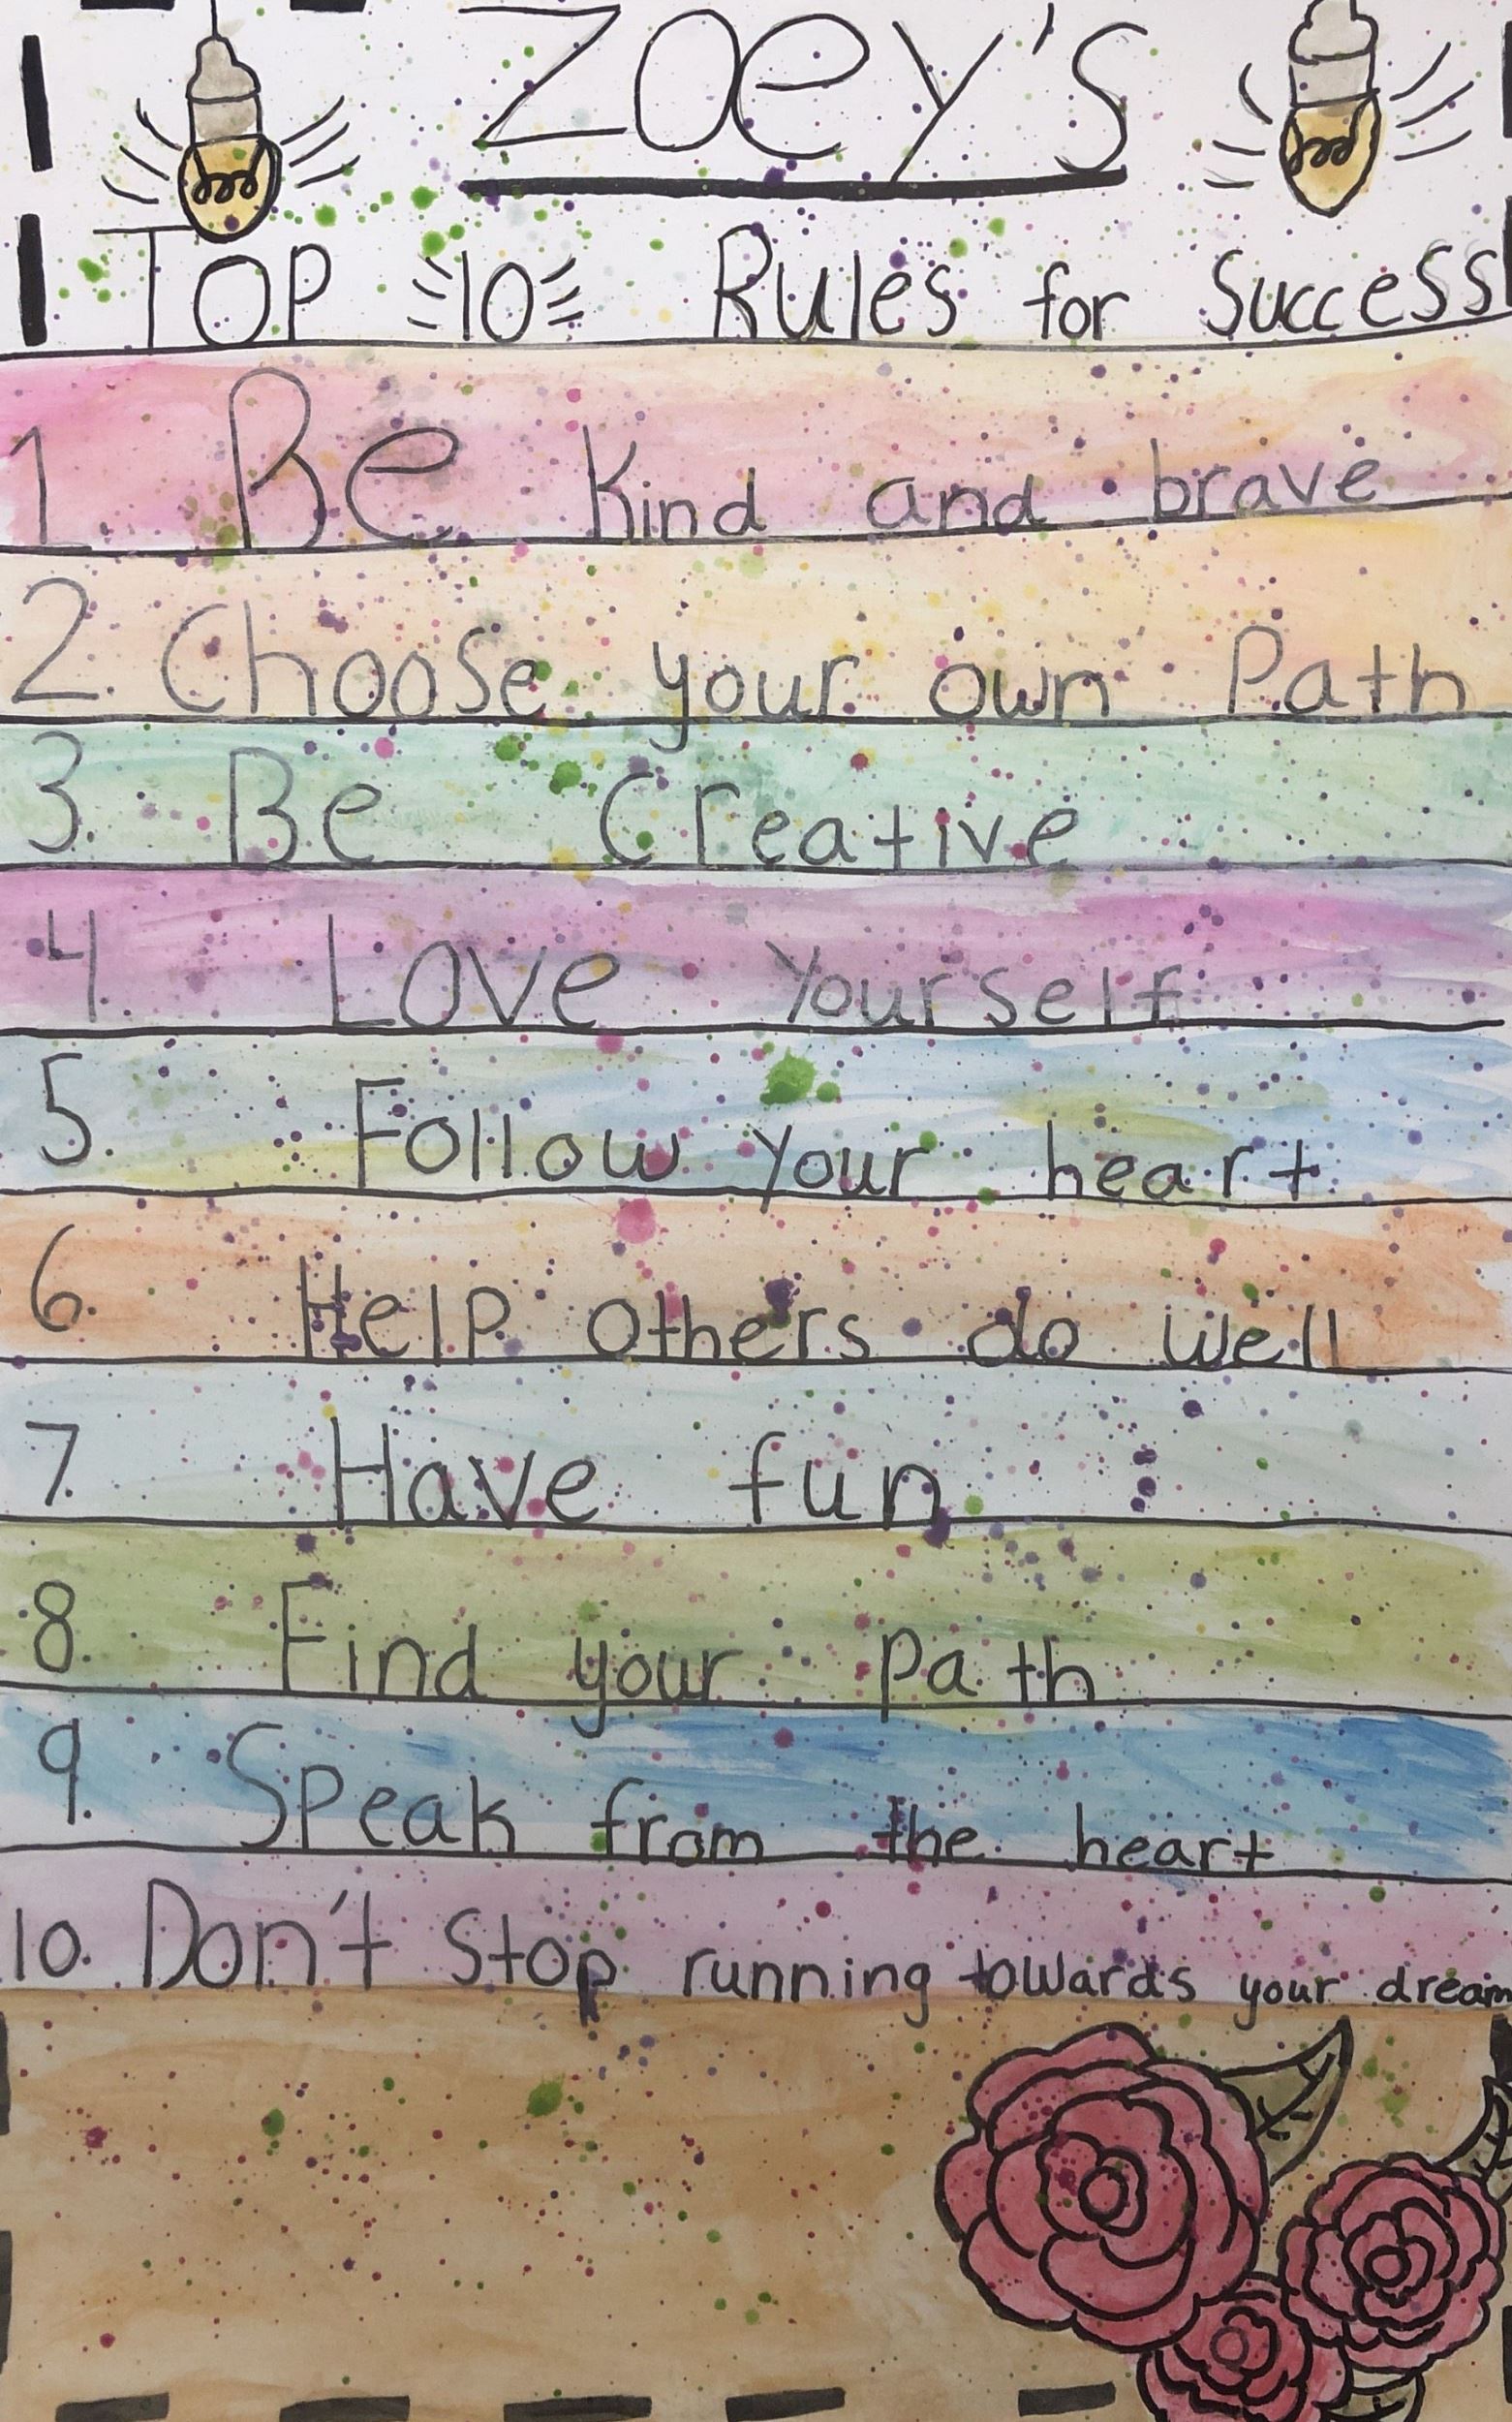 Zoey's
Top 10 Rules for Success
1. Be Kind and brave
2. Choose your own Path
3. Be Creative
4. Love Yourself
5. Follow your heart
6. Help others do well
7. Have fun
8. Find your path
9. Speak from the heart
10. Don't Stop running towards your dream